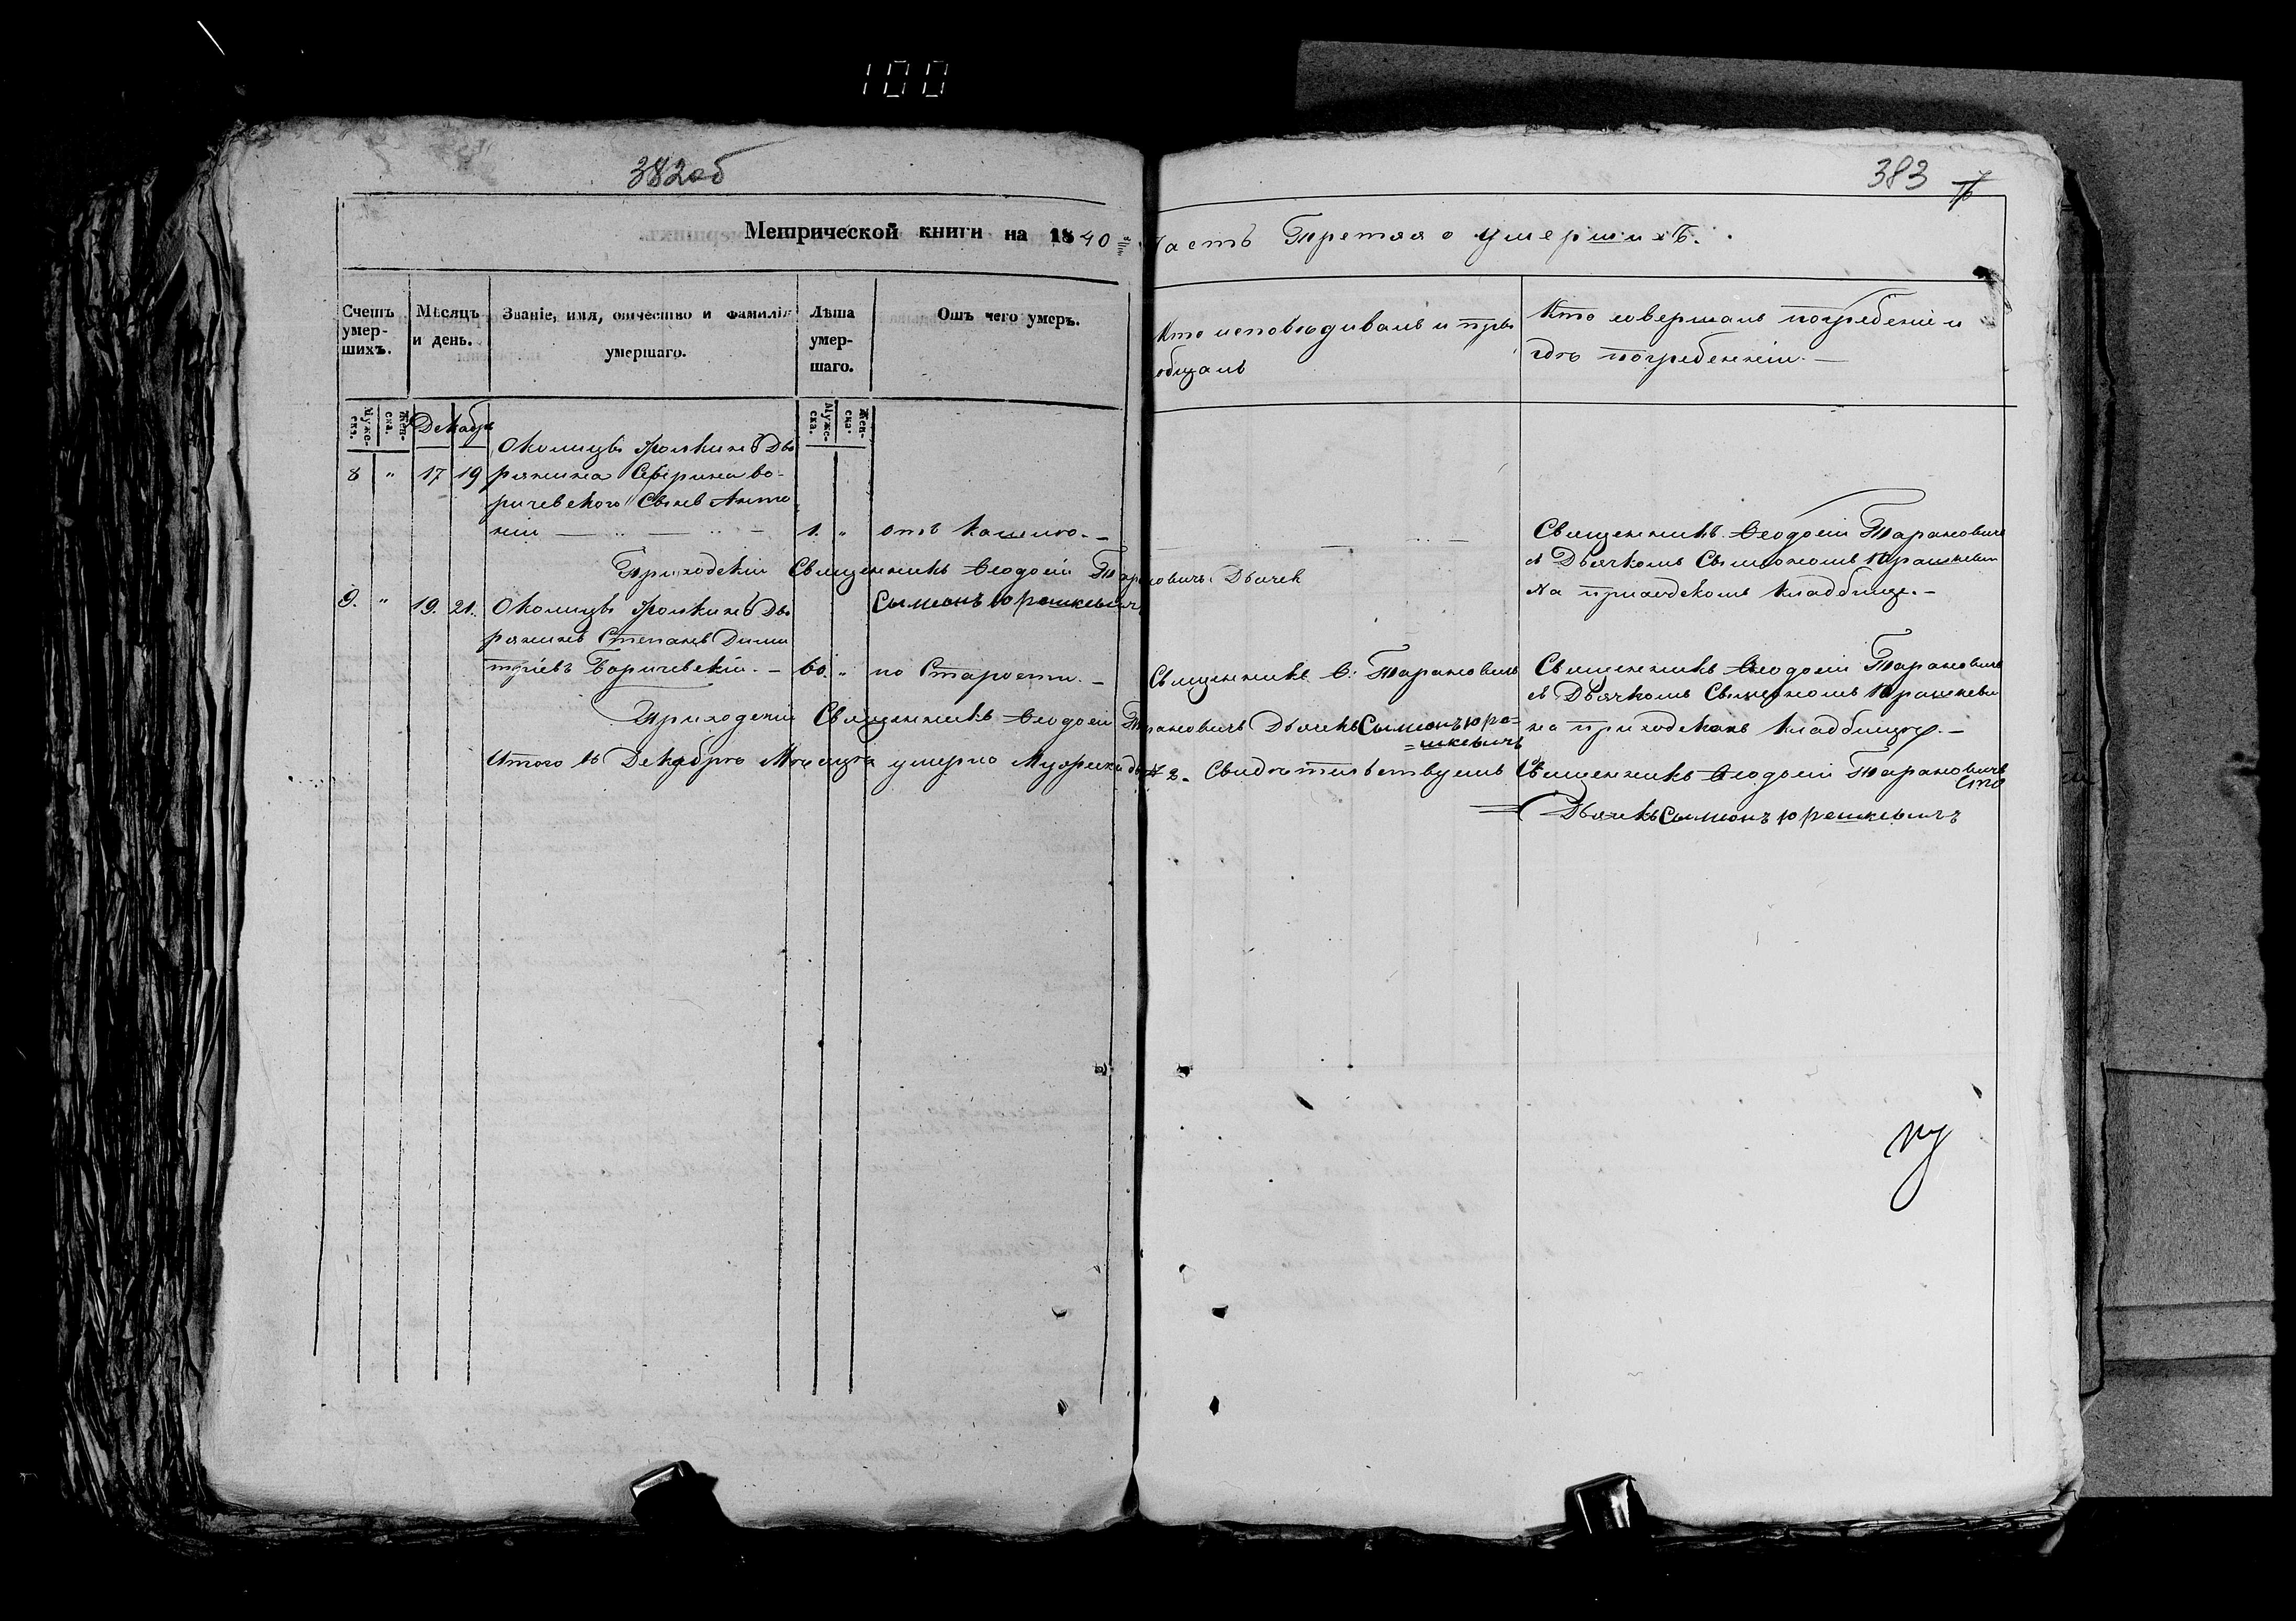 100
382об
383
Метрической книги на 1840
Часть Третая о умершихъ.
Счетъ умер-шихъ.
Мѣсяцъ и день.
Званіе, имя, отчество и фамилія умершаго.
Лѣта умер-шаго.
Отъ чего умеръ.
Кто исповѣдивалъ и пріобщалъ
Кто совершалъ погребеніе и гдѣ погребенніи. —
Муже-ска.
Жен-ска.
Декабр
Муже-ска.
Жен-ска.
Околицы Гролкинъ Дво
8 " 17 19 рянина Северина Бо-
ричевского Сынъ Анто
ній — 1. " отъ кашлю. —
Священникъ Ѳеодосій Тарановичъ
съ Дьячкомъ Сымеономъ Юрашкевич
На приходскомъ кладбище. —
Приходскій Священникъ Ѳеодосій Тарановичъ Дьячек
Сымеонъ Юрашкевичъ
9. " 19. 21. Околицы Гролкинъ Дво
рянинъ Степанъ Дими
тріевъ Боричевскій. — 60. " по Старости. —
Священникъ Ѳ. Тарановичъ
Священникъ Ѳеодосій Тарановичъ
съ Дьячкомъ Сымеономъ Юрашкеви
на приходскомъ кладбищѣ. —
Приходскій Священникъ Ѳеодосій Тарановичъ Дьячекъ Сымеонъ Юра=
=шкевичъ
Итого въ Декабрѣ Мѣсяцѣ умерло Мужеска 2. Свидѣтельствуемъ Священникъ Ѳеодосій Тарановичъ
Дьячекъ Сымеонъ Юрашкевичъ